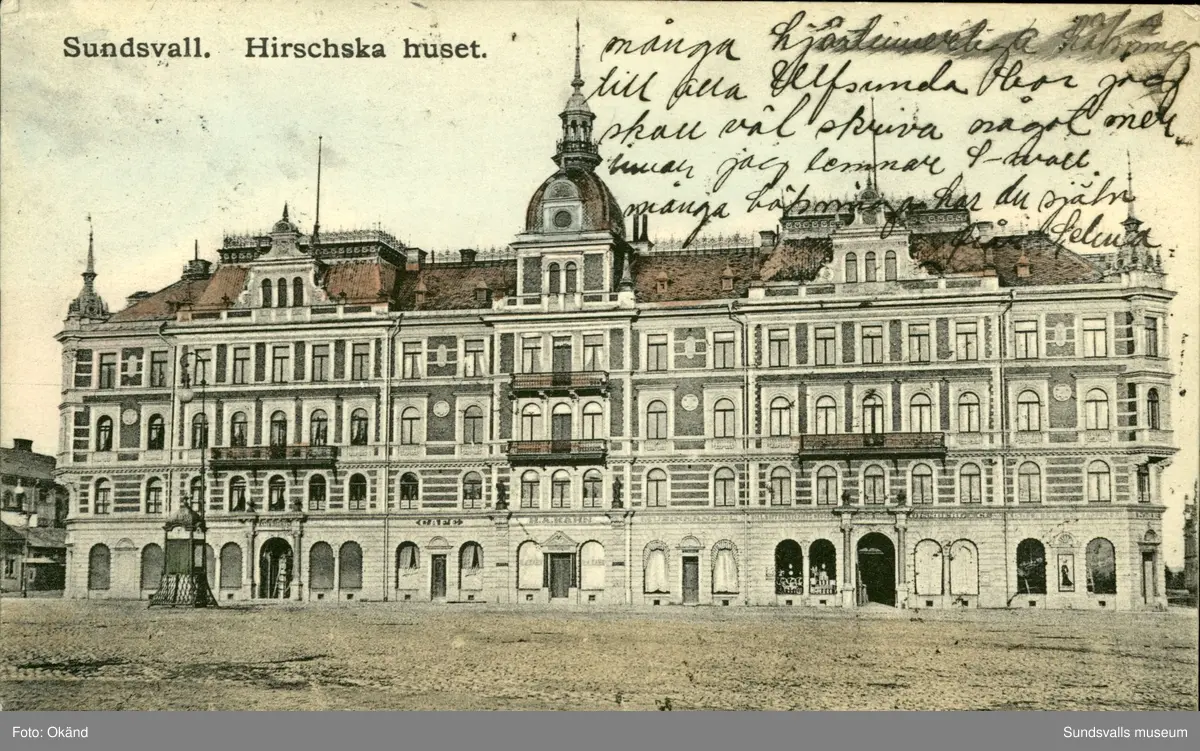 Sundsvall. Hirschska huset.
många hjärtinnerliga hälsningar
till alla Ulfsunda bor jag
skall väl skriva något mer
innan jag lemnar S-vall
många hälsningar har du själv
från Selma
CAFÉ
H. A. KAHN
Foto: Okänd
Sundsvalls museum